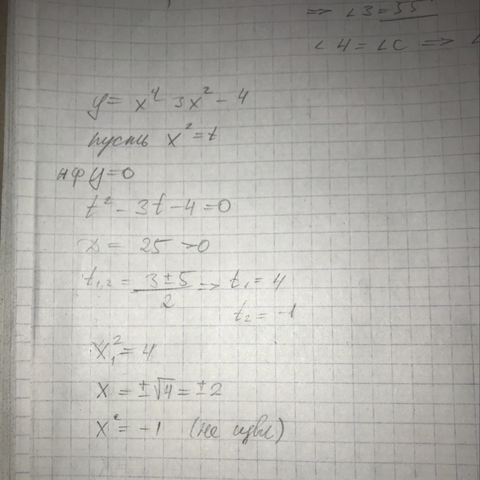 => ∠3 = 55
∠4 = ∠C => ∠
y = x⁴ 3x² - 4
пусть x² = t
нф y = 0
t² - 3t - 4 = 0
D = 25 > 0
t₁,₂ = (3 ± 5)/2 => t₁ = 4
t₂ = -1
x₁² = 4
x = ±√4 = ±2
x² = -1 (не изв)